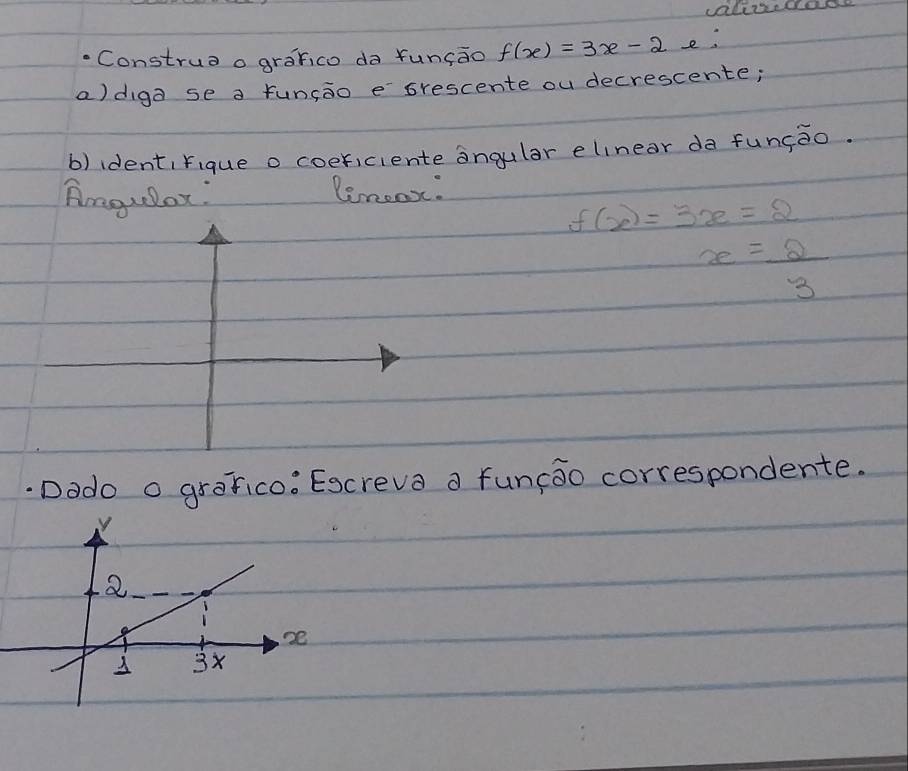 • Construa o gráfico da função f(x) = 3x - 2 e:
a) diga se a função e crescente ou decrescente;
b) identifique o coeficiente ângular e linear da função.
Ângular: linear:
f(x) = 3x = 2
x = 2
3
• Dado o gráfico: Escreva a função correspondente.
y
2
x
1 3x